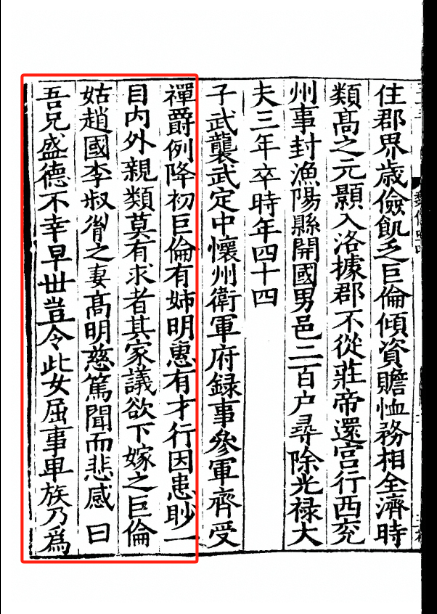 住郡界歲儉飢乏巨倫傾資贍恤務相全濟時
類高之元顥入洛據郡不從莊帝還宮行西兖
州事封漁陽縣開國男邑二百户尋除光禄大
夫三年卒時年四十四
子武襲武定中懷州衛軍府録事參軍齊受
禪爵例降初巨倫有姊明惠有才行因患眇一
目内外親類莫有求者其家議欲下嫁之巨倫
姑趙國李叔胤之妻高明慈篤聞而悲感曰
吾兄盛德不幸早世豈令此女屈事卑族乃爲